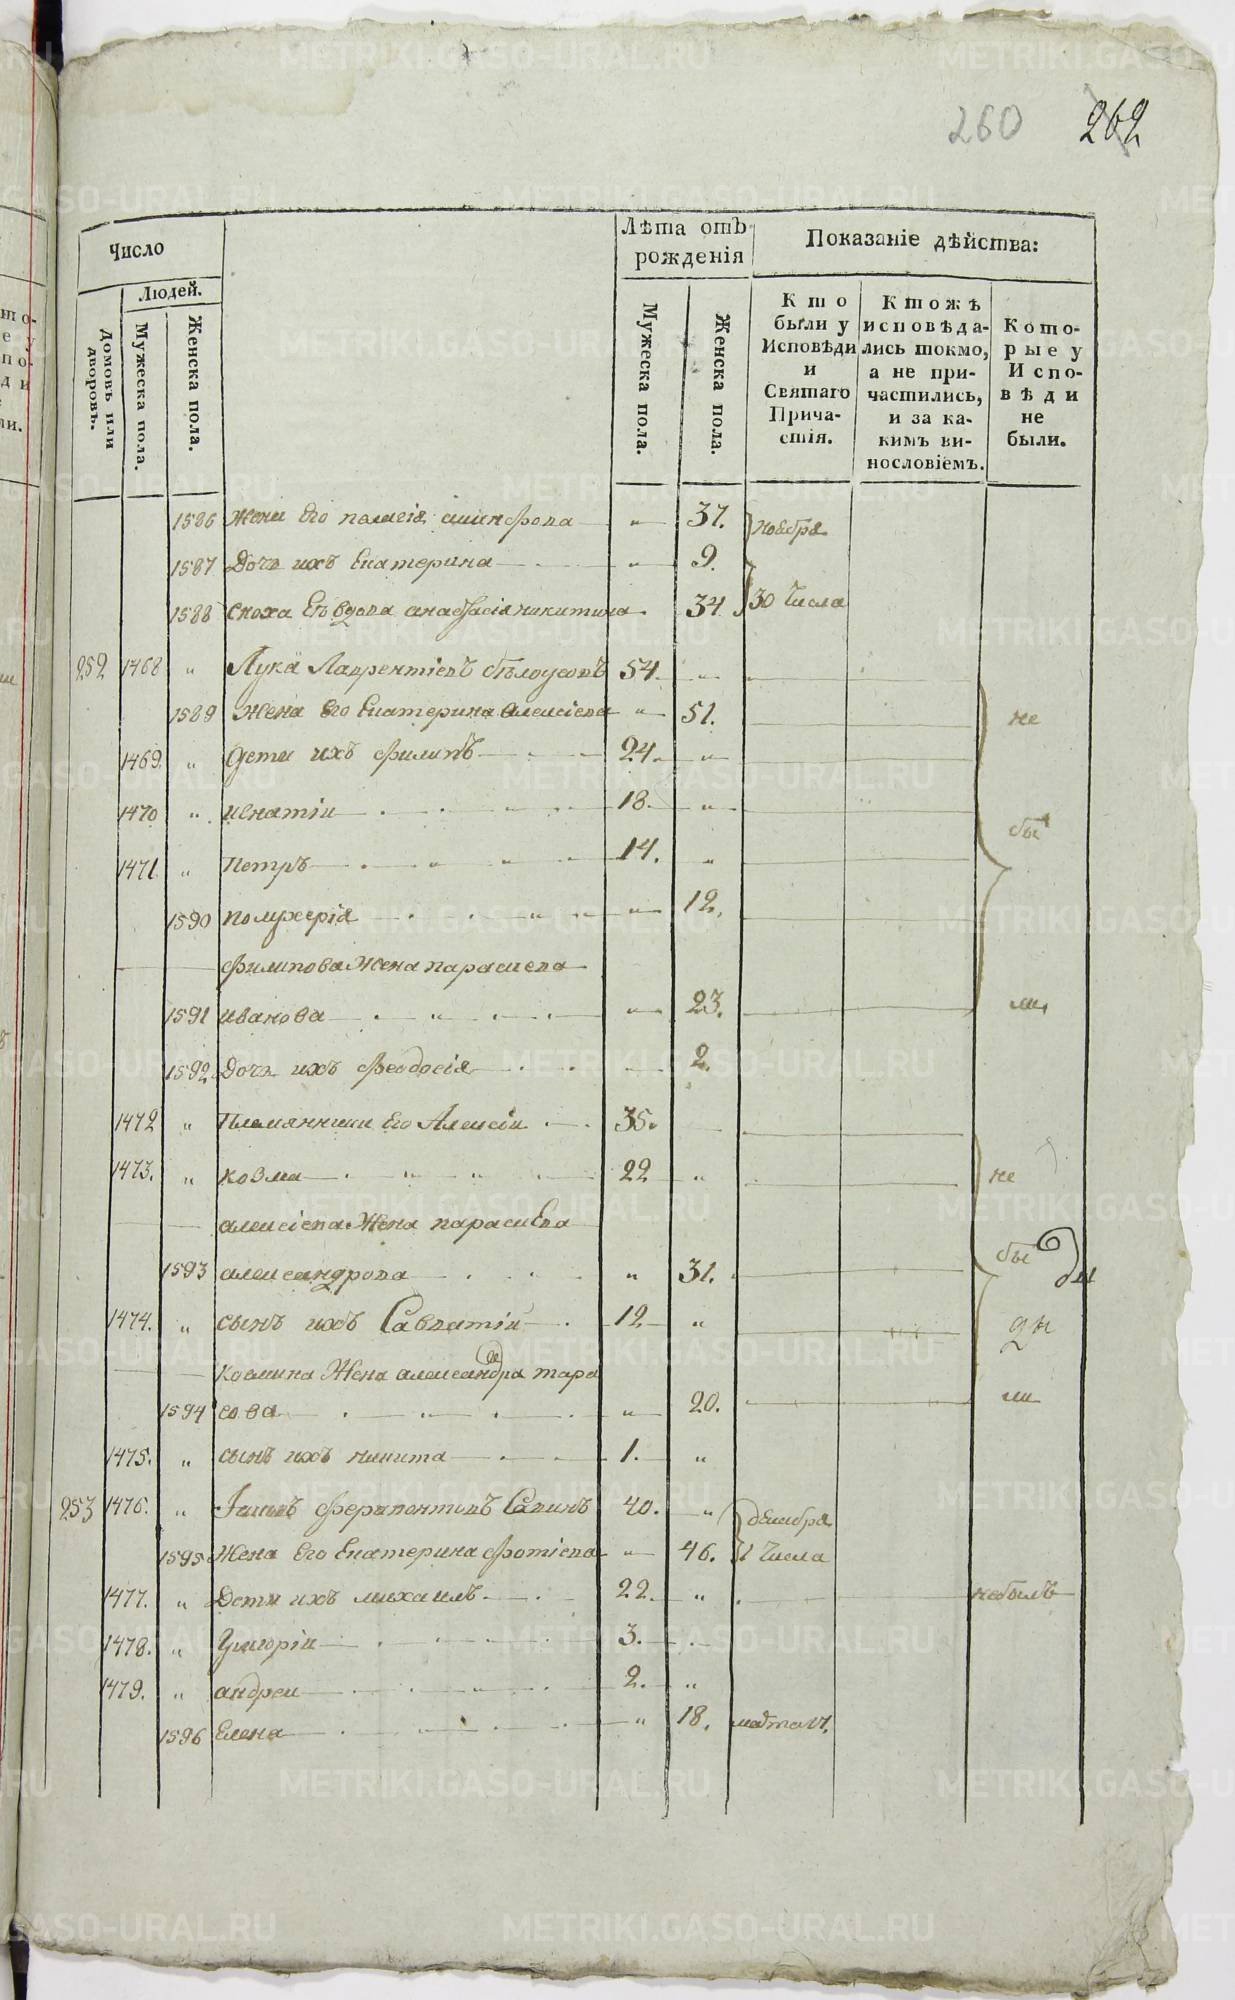 260 262
Число
Лѣта отъ рожденія
Показаніе дѣйства:
Людей.
Домовъ или дворовъ.
Мужеска пола.
Женска пола.
Мужеска пола.
Женска пола.
Кто были у Исповѣди и Святаго Причастія.
Ктожъ исповѣдались токмо, а не причастились, и за какимъ винословіемъ.
Которые у Исповѣди не были.
1586 Жена Его пелагія 37. ноября
1587 Дочь ихъ Екатерина 9.
1588 сноха Его вдова анастасія никитина 34 30 Числа
252 1468 " Лука Лаврентіевъ бѣлоусовъ 54.
1589 Жена Его Екатерина алексіева " 51. не
1469. " Дети ихъ филипъ 24. "
1470 " игнатіи 18. "
1471 " Петръ 14. " бы
1590 полухерія " 12.
филипова Жена парасиева
1591 иванова " 23. ли,
1592 Дочь ихъ феодосія 2.
1472 " Племянники Его Алексіи 35.
1473. " козма 22 " не
алексіева Жена парасиева
1593 александрова " 31. бы
1474. " сынъ ихъ Савватіи 12. "
козмина Жена александра тара
1594 сова " 20. ли
1475. " сынъ ихъ никита 1. "
253 1476. " Іаковъ Ферапонтовъ Савинъ 40. " декабря
1595 Жена Его Екатерина фотіева " 46. 1 Числа
1477. " Дети ихъ михаилъ 22. " небылъ
1478. " Григоріи 3.
1479. " андреи 2. "
1596 Елена " 18.
METRIKI.GASO-URAL.RU